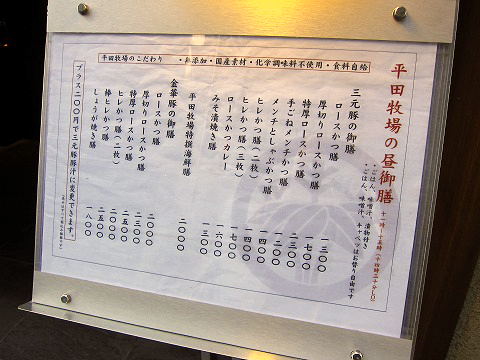 平田牧場のこだわり ・無添加・国産素材・化学調味料不使用・食料自給
平田牧場の昼御膳
十一時〜十五時
・ごはん、味噌汁、漬物付き
・ごはん、味噌汁、キャベツはお替り自由です
三元豚の御膳
ロースかつ膳 一三〇〇
厚切りロースかつ膳 一七〇〇
特厚ロースかつ膳 二三〇〇
手ごねメンチかつ膳 一二〇〇
メンチとしゃぶかつ膳 一四〇〇
ヒレかつ膳(二枚) 一四〇〇
ヒレかつ膳(三枚) 一七〇〇
ロースかつカレー 一六〇〇
みそ漬焼き膳 一三〇〇
平田牧場特撰海鮮膳 二〇〇〇
金華豚の御膳
ロースかつ膳 二〇〇〇
厚切りロースかつ膳
特厚ロースかつ膳
ヒレかつ膳(二枚)
棒ヒレかつ膳 二五〇〇
しょうが焼き膳 一八〇〇
プラス二〇〇円で三元豚豚汁に変更できます。